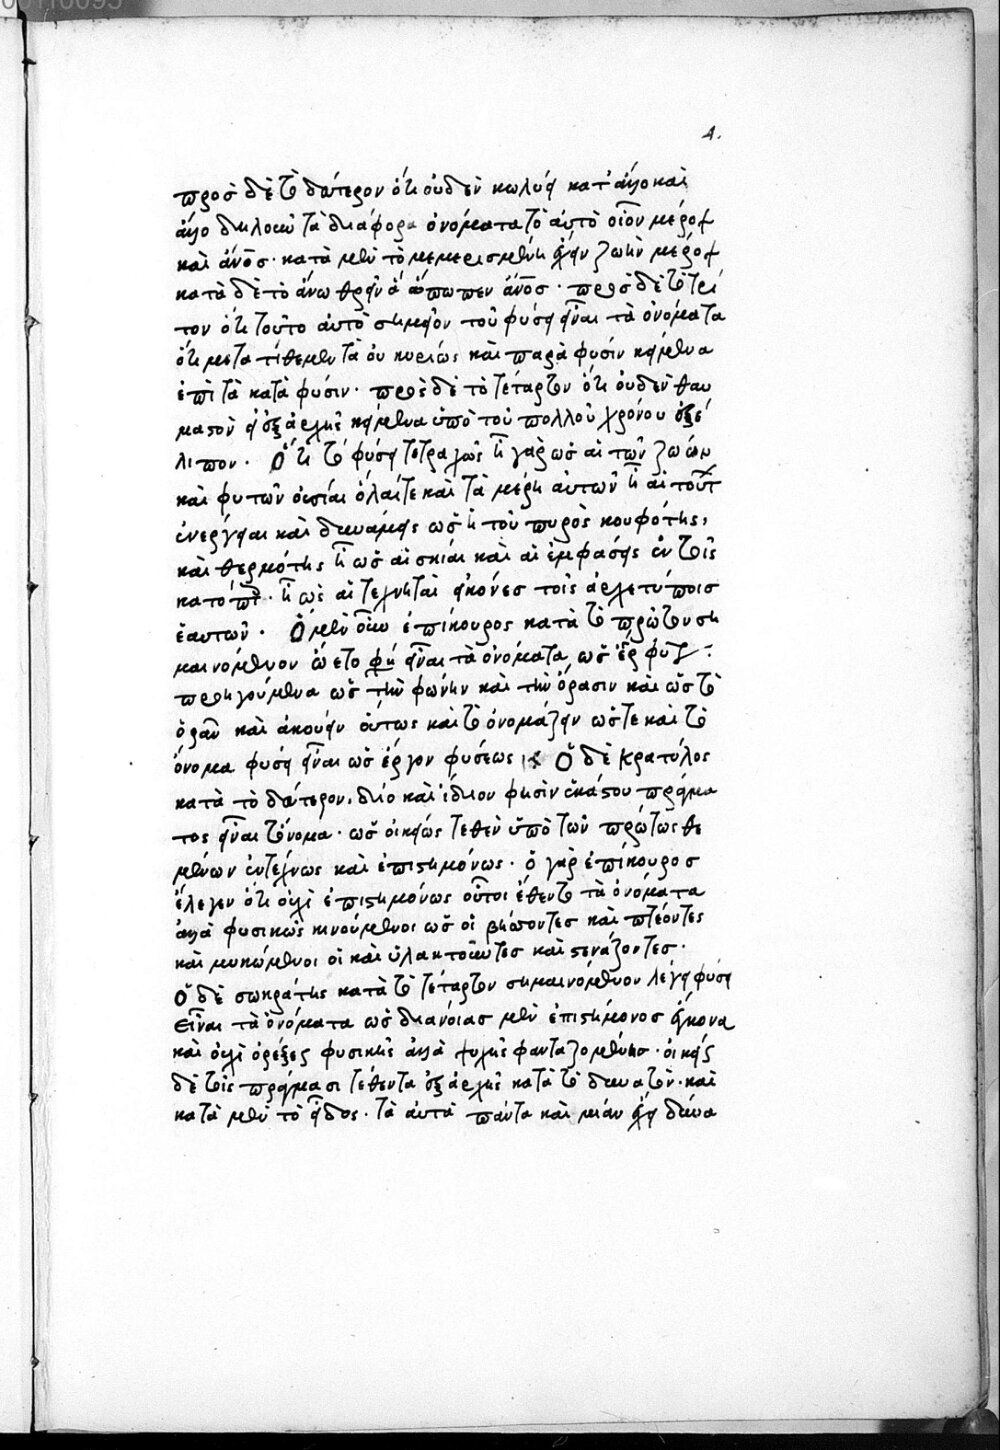 4.
πρὸς δὲ τὸ δεύτερον ὅτι οὐδὲν κωλύει κατ' ἄλλο καὶ
ἄλλο δηλοῦν τὰ διάφορα ὀνόματα τὸ αὐτὸ οἷον μέροψ
καὶ ἄνος· κατὰ μὲν τὸ μεμερισμένην ἔχειν ζωὴν μέροψ
κατὰ δὲ τὸ ἀναθρεῖν ἃ ὄπωπεν ἄνος· πρὸς δὲ τὸ τρί
τον ὅτι τοῦτο αὐτὸ σημεῖον τοῦ φύσει εἶναι τὰ ὀνόματα
ὅτι μετατίθεμεν τὰ οὐ κυρίως καὶ παρὰ φύσιν κείμενα
ἐπὶ τὰ κατὰ φύσιν· πρὸς δὲ τὸ τέταρτον ὅτι οὐδὲν θαυ
μαστὸν εἰ ἐξ ἀρχῆς κείμενα ὑπὸ τοῦ πολλοῦ χρόνου ἐξέ
λιπον· Ὅτι τὸ φύσει τετραχῶς ἢ γὰρ ὡς αἱ τῶν ζώων
καὶ φυτῶν οὐσίαι ὅλαι τε καὶ τὰ μέρη αὐτῶν ἢ αἱ τούτ
ἐνέργειαι καὶ δυνάμεις ὡς ἡ τοῦ πυρὸς κουφότης,
καὶ θερμότης ἢ ὡς αἱ σκιαὶ καὶ αἱ ἐμφάσεις ἐν τοῖς
κατόπτρ· ἢ ὡς αἱ τεχνηταὶ εἰκόνες τοῖς ἀρχετύποις
ἑαυτῶν· Ὁ μὲν οὖν ἐπίκουρος κατὰ τὸ πρῶτον ση
μαινόμενον ᾤετο φύ εἶναι τὰ ὀνόματα, ὡς ἔργ φύς
προηγούμενα ὡς τὴν φωνὴν καὶ τὴν ὅρασιν καὶ ὡς τὸ
ὁρᾶν καὶ ἀκούειν οὕτως καὶ τὸ ὀνομάζειν ὥστε καὶ τὸ
ὄνομα φύσει εἶναι ὡς ἔργον φύσεως Ὁ δὲ Κρατύλος
κατὰ τὸ δεύτερον· διὸ καὶ ἴδιον φησὶν ἑκάστου πράγμα
τος εἶναι τὄνομα· ὡς οἰκείως τεθὲν ὑπὸ τῶν πρώτως θε
μένων ἐντέχνως καὶ ἐπιστημόνως· ὁ γὰρ ἐπίκουρος
ἔλεγεν ὅτι οὐχὶ ἐπιστημόνως οὗτοι ἔθεντο τὰ ὀνόματα
ἀλλὰ φυσικῶς κινούμενοι ὡς οἱ βήσσοντες καὶ πταίοντες
καὶ μυκώμενοι οἱ καὶ ὑλακτοῦντες καὶ στενάζοντες·
Ὁ δὲ σωκράτης κατὰ τὸ τέταρτον σημαινόμενον λέγει φύσει
εἶναι τὰ ὀνόματα ὡς διανοίας μὲν ἐπιστήμονος ἔκγονα
καὶ οὐχὶ ὀρέξεως φυσικῆς ἀλλὰ ψυχῆς φανταζομένης· οἰκείως
δὲ τοῖς πράγμασι τεθέντα ἐξ ἀρχῆς κατὰ τὸ δυνατόν· καὶ
κατὰ μὲν τὸ εἶδος· τὰ αὐτὰ πάντα καὶ μίαν ἔχει δύνα